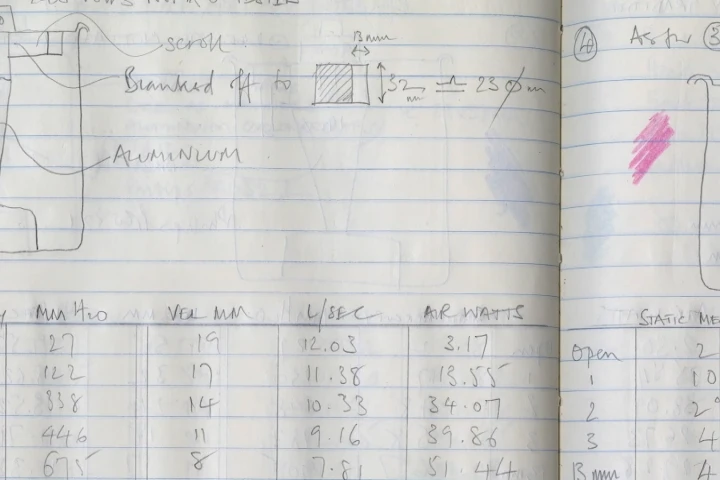 scroll
13mm
Blanked off to 32mm ≏ 23 ømm
ALUMINIUM
MM H2O VEL MM L/SEC AIR WATTS
27 19 12.03 3.17
122 17 11.38 13.55
338 14 10.33 34.07
446 11 9.16 39.86
675 8 7.81 51.44
4 As for 3
STATIC ME
Open 2
1 10
2 2
3 4
13mm 4